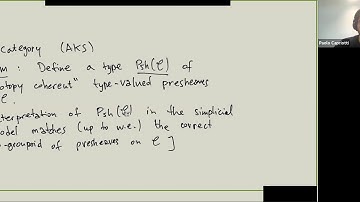 category (AKS)
m : Define a type Psh(C) of
otopy coherent" type-valued presheaves
C.
terpretation of Psh(C) in the simplicial
odel matches (up to w.e.) the correct
-groupoid of presheaves on C ]
Paolo Capriotti